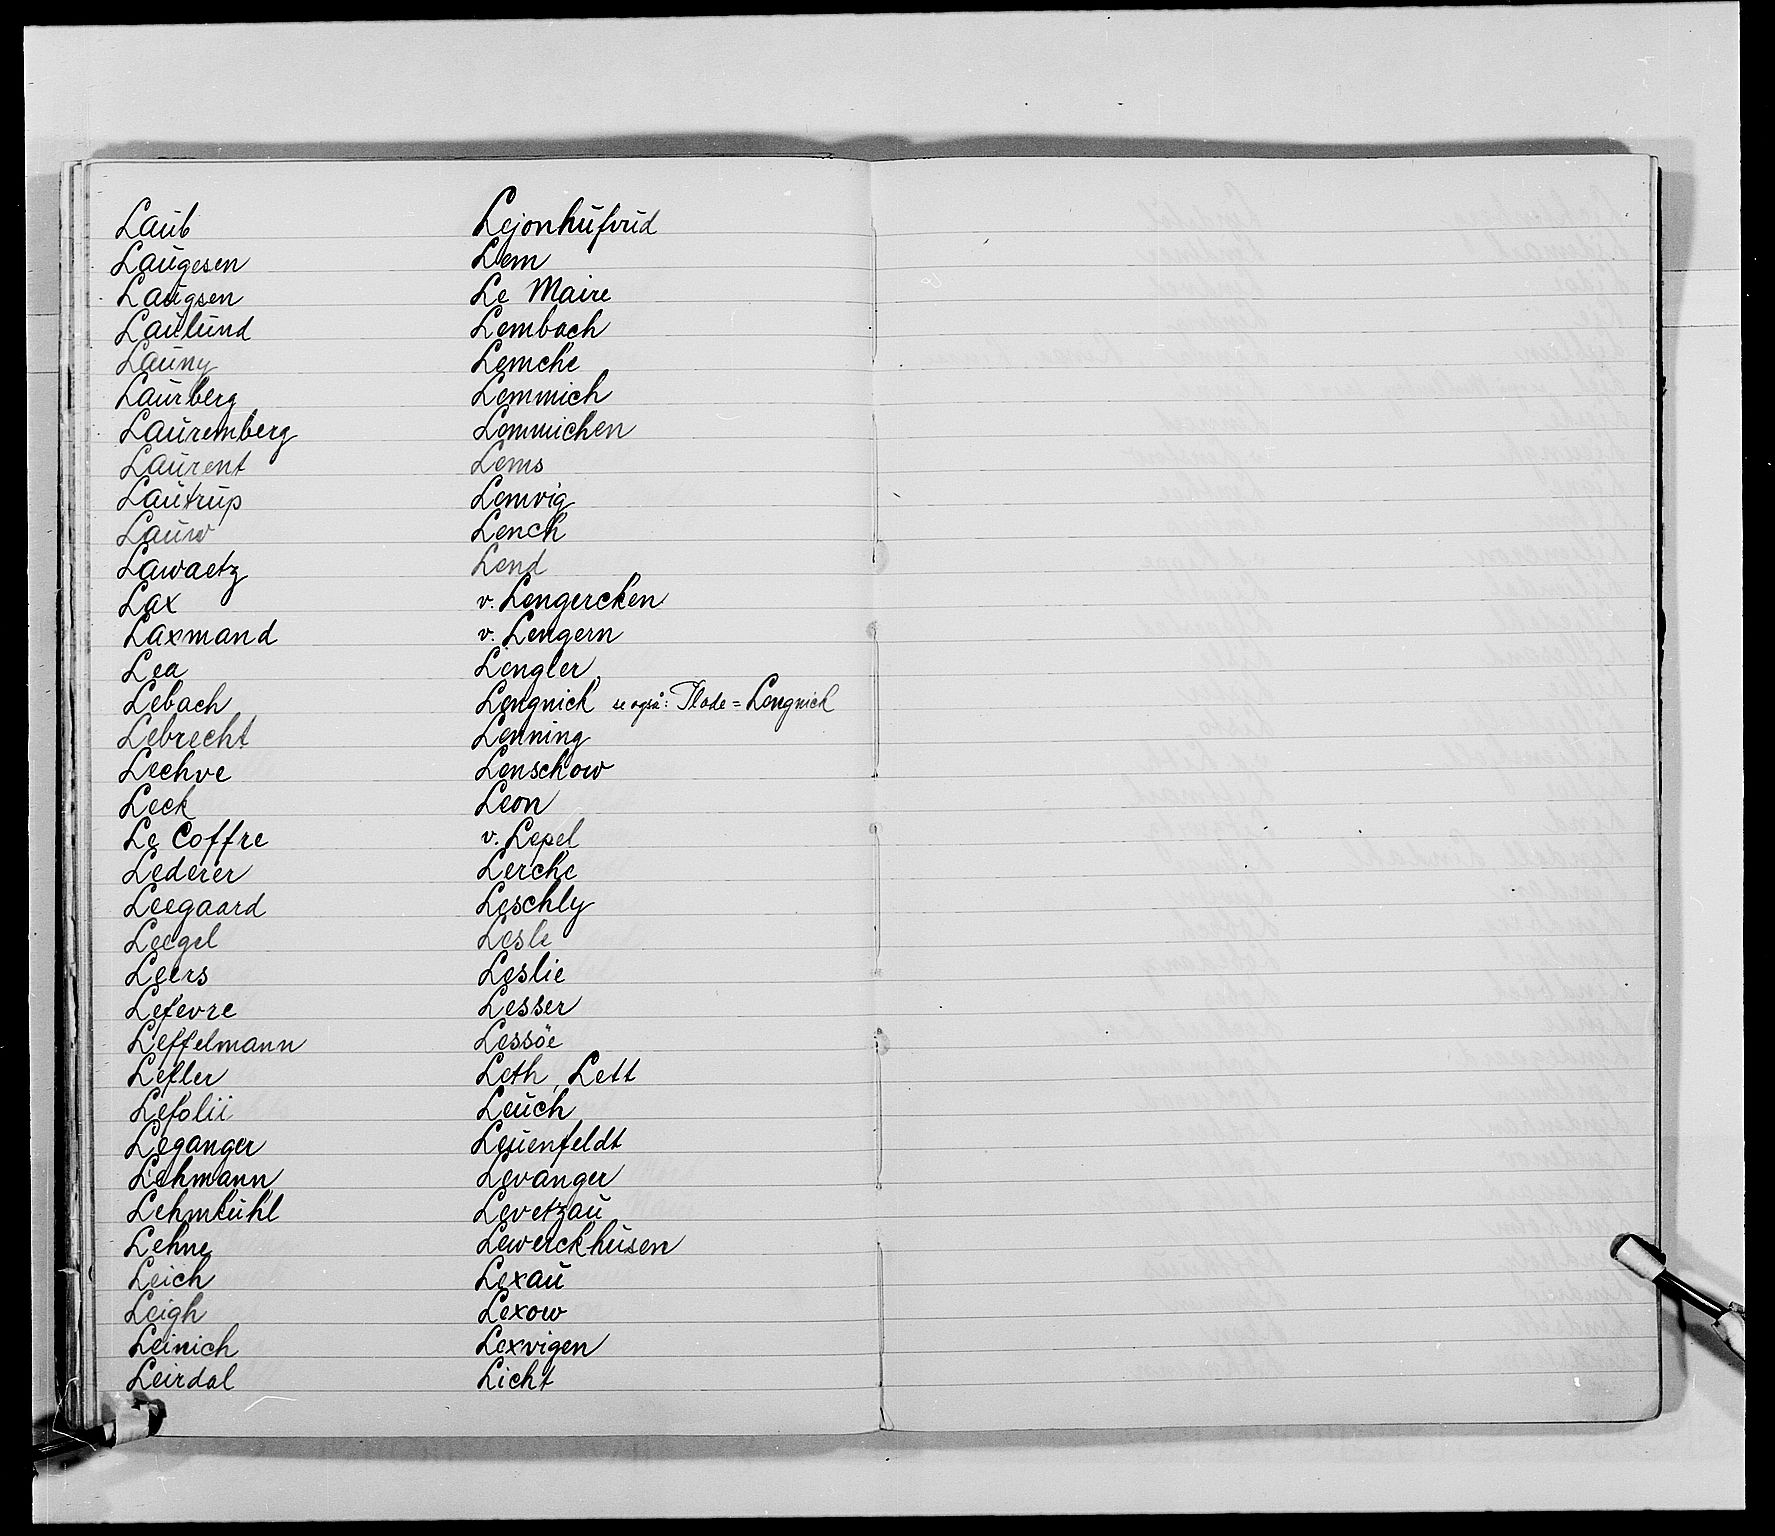 Laub
Laugesen
Laugsen
Laulund
Launy
Laurberg
Lauremberg
Laurent
Lautrup
Lauw
Lawaetz
Lax
Laxmand
Lea
Lebach
Lebrecht
Lechve
Leck
Le Coffre
Lederer
Leegaard
Leegel
Leers
Lefevre
Leffelmann
Lefler
Lefolii
Leganger
Lehmann
Lehmkühl
Lehne
Leich
Leigh
Leinich
Leirdal
Lejonhufvud
Lem
Le Maire
Lembach
Lemche
Lemmich
Lemmichen
Lems
Lemvig
Lench
Lend
v. Lengercken
v. Lengern
Lengler
Lengnick se også: Plade = Lengnick
Lenning
Lenschow
Leon
v. Lepel
Lerche
Leschly
Lesle
Leslie
Lesser
Lessöe
Leth, Lett
Leuch
Leuenfeldt
Levanger
Levetzau
Lewerckhusen
Lexau
Lexow
Lexvigen
Licht